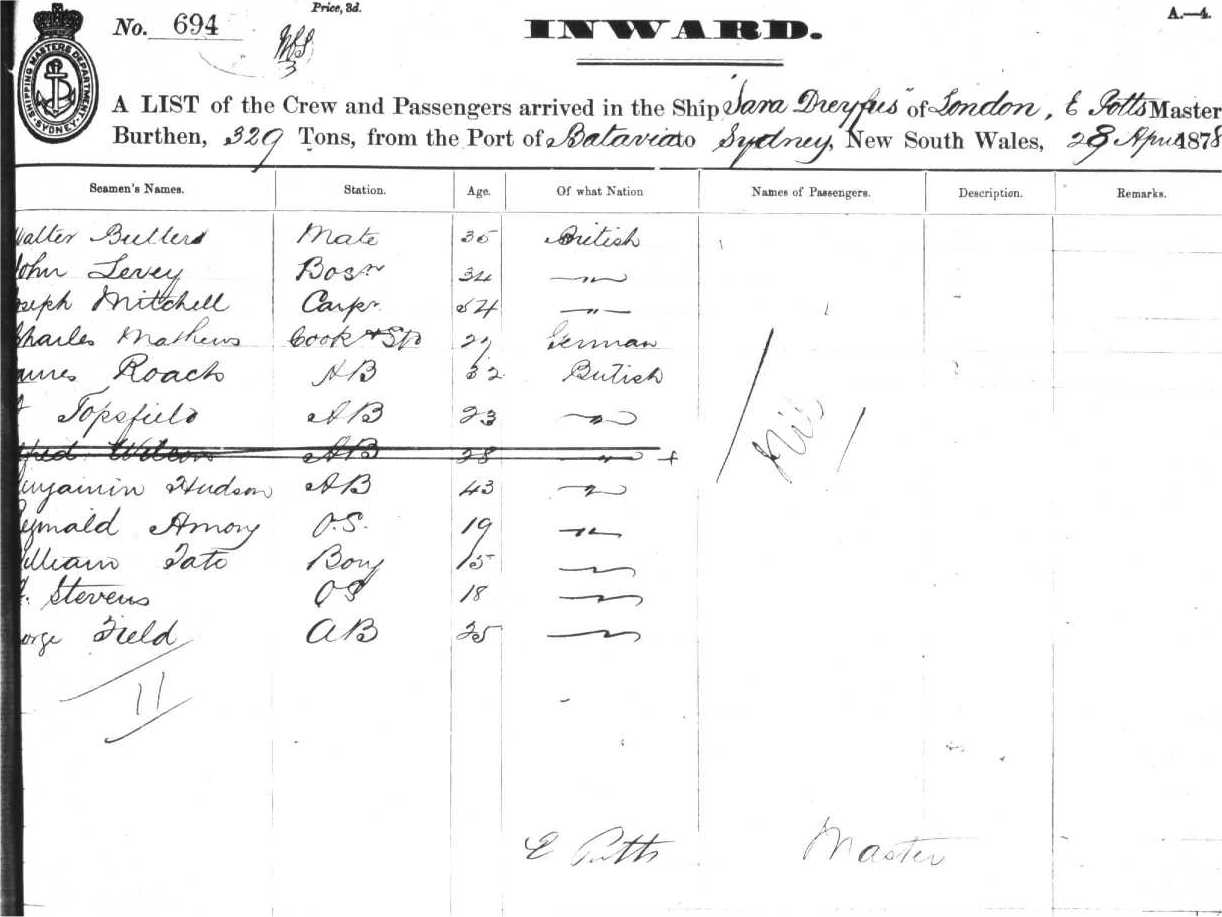 Price, 3d.
A.—4.
No. 694
INWARD.
SHIPPING MASTERS DEPARTMENT SYDNEY
A LIST of the Crew and Passengers arrived in the Ship "Sara Dreyfus" of London, E Potts Master
Burthen, 329 Tons, from the Port of Batavia to Sydney, New South Wales, 28 April 1878
Seamen's Names. Station. Age. Of what Nation Names of Passengers. Description. Remarks.
Walter Butlers Mate 35 British
John Levey Bosn 34 — " —
oseph Mitchell Carpr 54 — " —
Charles Mathews Cook & Std 27 German
ames Roach AB 32 British
Topsfield AB 23 — " —
lfred Wilson AB 28 — " — +
enjamin Hudson AB 43 — " —
Amory O.S. 19 — " —
William Tate Boy 15 — " —
Stevens OS 18 — " —
eorge Field AB 25 — " —
Nil
11
E Potts Master